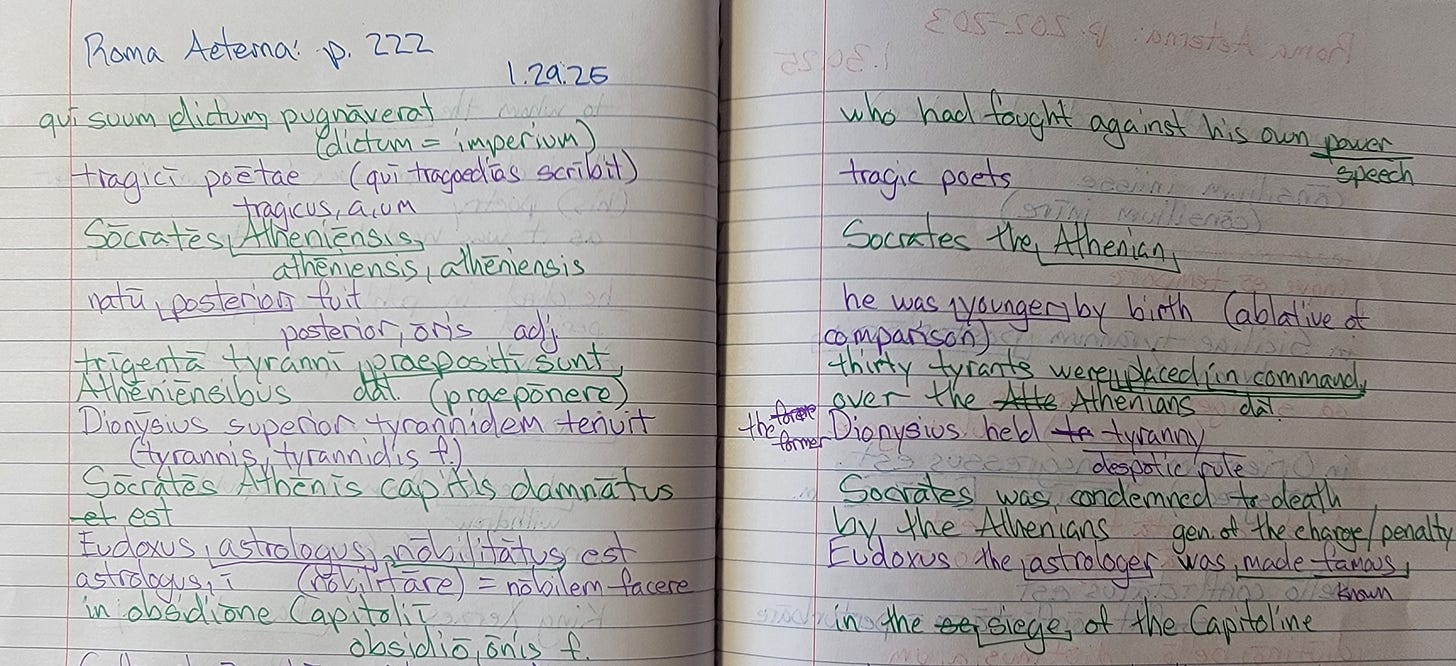 Roma Aeterna: p. 222
1.29.25
qui suum dictum pugnāverat
(dictum = imperium)
tragicī poētae (quī tragoedias scrībit)
tragicus, a, um
Sōcratēs, Athēniēnsis,
athēniensis, athēniensis
natū posterior fuit
posterior, oris adj
trīgentā tyrannī praepositī sunt
Athēniēnsibus dat. (praepōnere)
Dionȳsius superior tyrannidem tenuit
(tyrannis, tyrannidis f.)
Sōcratēs Athēnīs capitis damnātus
et est
Eudoxus, astrologus, nōbilitātus est
astrologus, ī (nōbilitāre) = nōbilem facere
in obsidiōne Capitoliī
obsidiō, ōnis f.
who had fought against his own power
speech
tragic poets
Socrates the Athenian,
he was younger by birth (ablative of
comparison)
thirty tyrants were placed in command
over the Atte Athenians dat.
the former
former Dionysius held ta tyranny
despotic rule
Socrates was condemned to death
by the Athenians gen. of the charge/penalty
Eudoxus the astrologer was made famous,
known
in the siege of the Capitoline